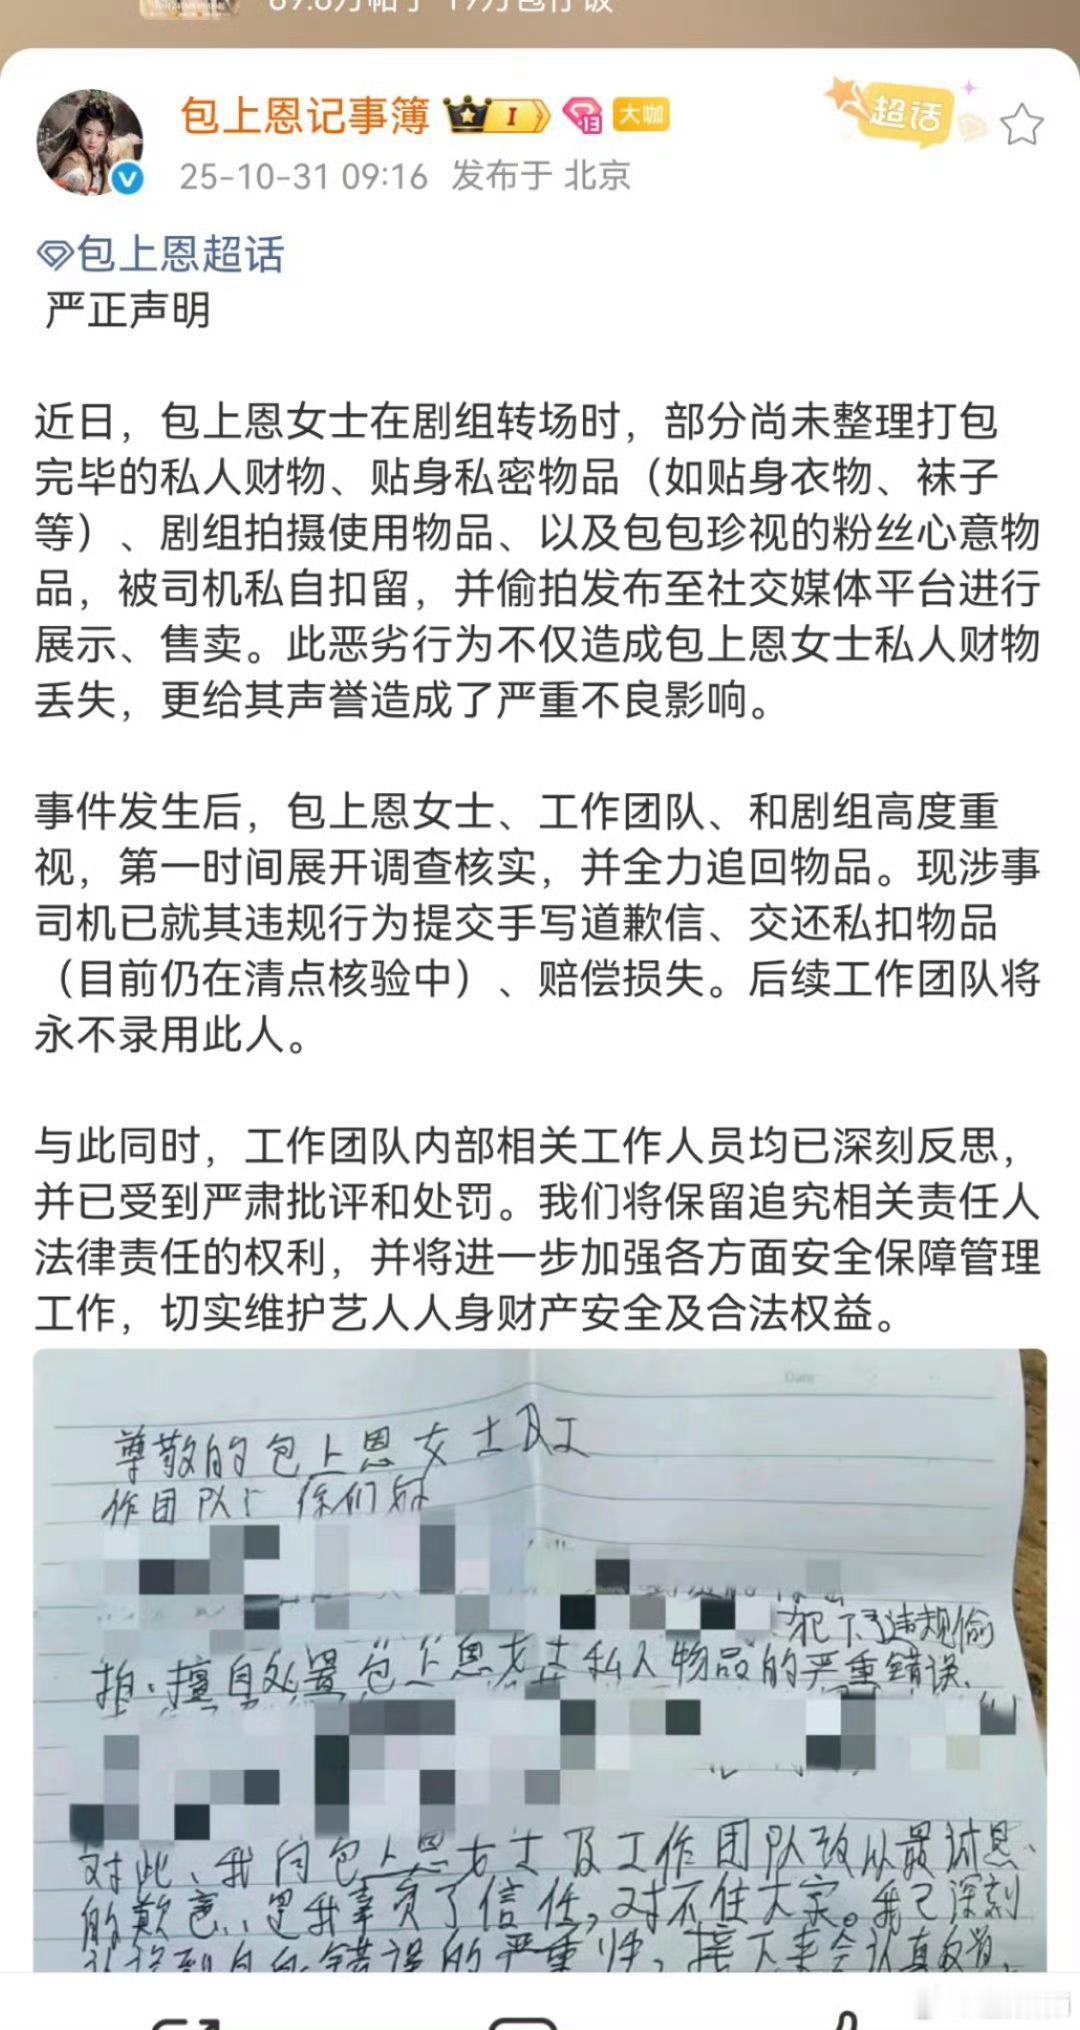 89.8万帖子 19万包仔饭
包上恩记事簿 I 13 大咖
超话
25-10-31 09:16 发布于 北京
包上恩超话
严正声明
近日，包上恩女士在剧组转场时，部分尚未整理打包
完毕的私人财物、贴身私密物品（如贴身衣物、袜子
等）、剧组拍摄使用物品、以及包包珍视的粉丝心意物
品，被司机私自扣留，并偷拍发布至社交媒体平台进行
展示、售卖。此恶劣行为不仅造成包上恩女士私人财物
丢失，更给其声誉造成了严重不良影响。
事件发生后，包上恩女士、工作团队、和剧组高度重
视，第一时间展开调查核实，并全力追回物品。现涉事
司机已就其违规行为提交手写道歉信、交还私扣物品
（目前仍在清点核验中）、赔偿损失。后续工作团队将
永不录用此人。
与此同时，工作团队内部相关工作人员均已深刻反思，
并已受到严肃批评和处罚。我们将保留追究相关责任人
法律责任的权利，并将进一步加强各方面安全保障管理
工作，切实维护艺人人身财产安全及合法权益。
Date
尊敬的包上恩女士及工
作团队: 你们好
犯下了违规偷
拍、擅自处置包上恩女士私人物品的严重错误、
对此、我向包上恩女士及工作团队致以最诚恳、
的歉意、是我辜负了信任，对不住大家。我已深刻
认识到自身错误的严重性，接下来会认真改过，